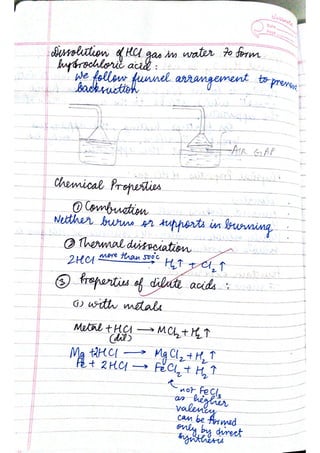 Dissolution of HCl gas in water to form
hydrochloric acid :
We follow funnel arrangement to prevent
backsuction.
AIR GAP
Chemical Properties
① Combustion
Neither burns or supports in burning
② Thermal dissociation
2HCl more than 500°C → H₂↑ + Cl₂↑
③ Properties of dilute acids :
(i) with metals
Metal + HCl → MCl₂ + H₂↑
(dil)
Mg + 2HCl → MgCl₂ + H₂↑
Fe + 2HCl → FeCl₂ + H₂↑
not FeCl₃
as higher
valency
can be formed
only by direct
synthesis